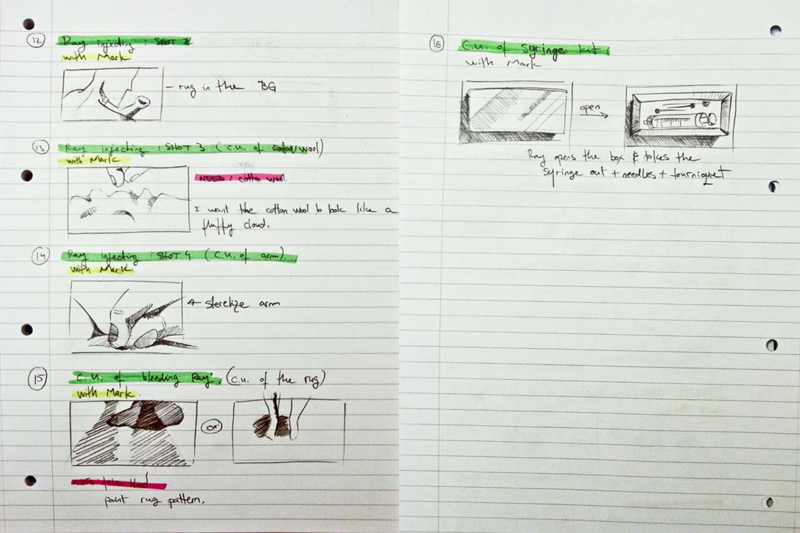 12 Ray injecting : SHOT 2
with Mark
rug in the BG
13 Ray injecting : SHOT 3 (C.U. of cotton wool)
with Mark
NEED : cotton wool
I want the cotton wool to look like a
fluffy cloud.
14 Ray injecting : SHOT 4 (C.U. of arm)
with Mark
sterelize arm
15 C.U. of bleeding Ray (C.U. of the rug)
with Mark
or
paint rug pattern.
16 C.U. of Syringe kit
with Mark
open
Ray opens the box & takes the
syringe out + needles + tourniquet